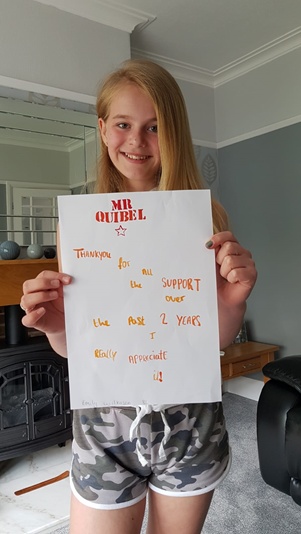 MR
QUIBEL
THANKYOU
for
ALL
the SUPPORT
over
the Past 2 YEARS
I
REally APPRCiate
it!